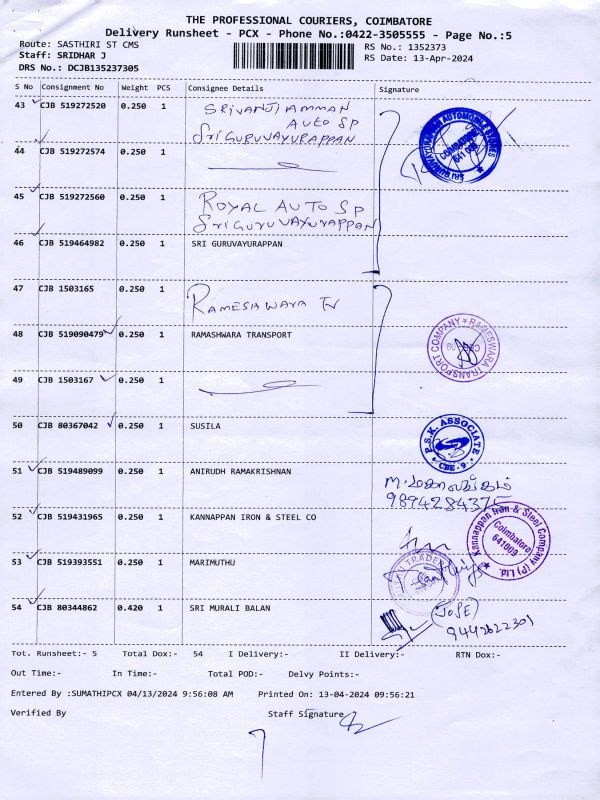 THE PROFESSIONAL COURIERS, COIMBATORE
Delivery Runsheet - PCX - Phone No.:0422-3505555 - Page No.:5
Route: SASTHIRI ST CMS
RS No.: 1352373
Staff: SRIDHAR J
RS Date: 13-Apr-2024
DRS No.: DCJB135237305
S No Consignment No Weight PCS Consignee Details Signature
43 CJB 519272520 0.250 1 SRIVANJIAMMAN
AUTO SP
SRIGURUVAYURAPPAN
44 CJB 519272574 0.250 1
COIMBATORE
641 009
45 CJB 519272560 0.250 1 ROYAL AUTO SP
SRIGURUVAYURAPPAN
46 CJB 519464982 0.250 1 SRI GURUVAYURAPPAN
47 CJB 1503165 0.250 1 RAMESHWARA
48 CJB 519090479 0.250 1 RAMASHWARA TRANSPORT
RAMESWARA TRANSPORT COMPANY
49 CJB 1503167 0.250 1
50 CJB 80367042 0.250 1 SUSILA
P.S.K. ASSOCIATE
CBE - 9
51 CJB 519489099 0.250 1 ANIRUDH RAMAKRISHNAN
52 CJB 519431965 0.250 1 KANNAPPAN IRON & STEEL CO
Kannappan Iron & Steel Company (P) Ltd.
Coimbatore
641009
53 CJB 519393551 0.250 1 MARIMUTHU
54 CJB 80344862 0.420 1 SRI MURALI BALAN
(JOSE)
9442622301
Tot. Runsheet:- 5 Total Dox:- 54 I Delivery:- II Delivery:- RTN Dox:-
Out Time:- In Time:- Total POD:- Delvy Points:-
Entered By :SUMATHIPCX 04/13/2024 9:56:08 AM Printed On: 13-04-2024 09:56:21
Verified By Staff Signature